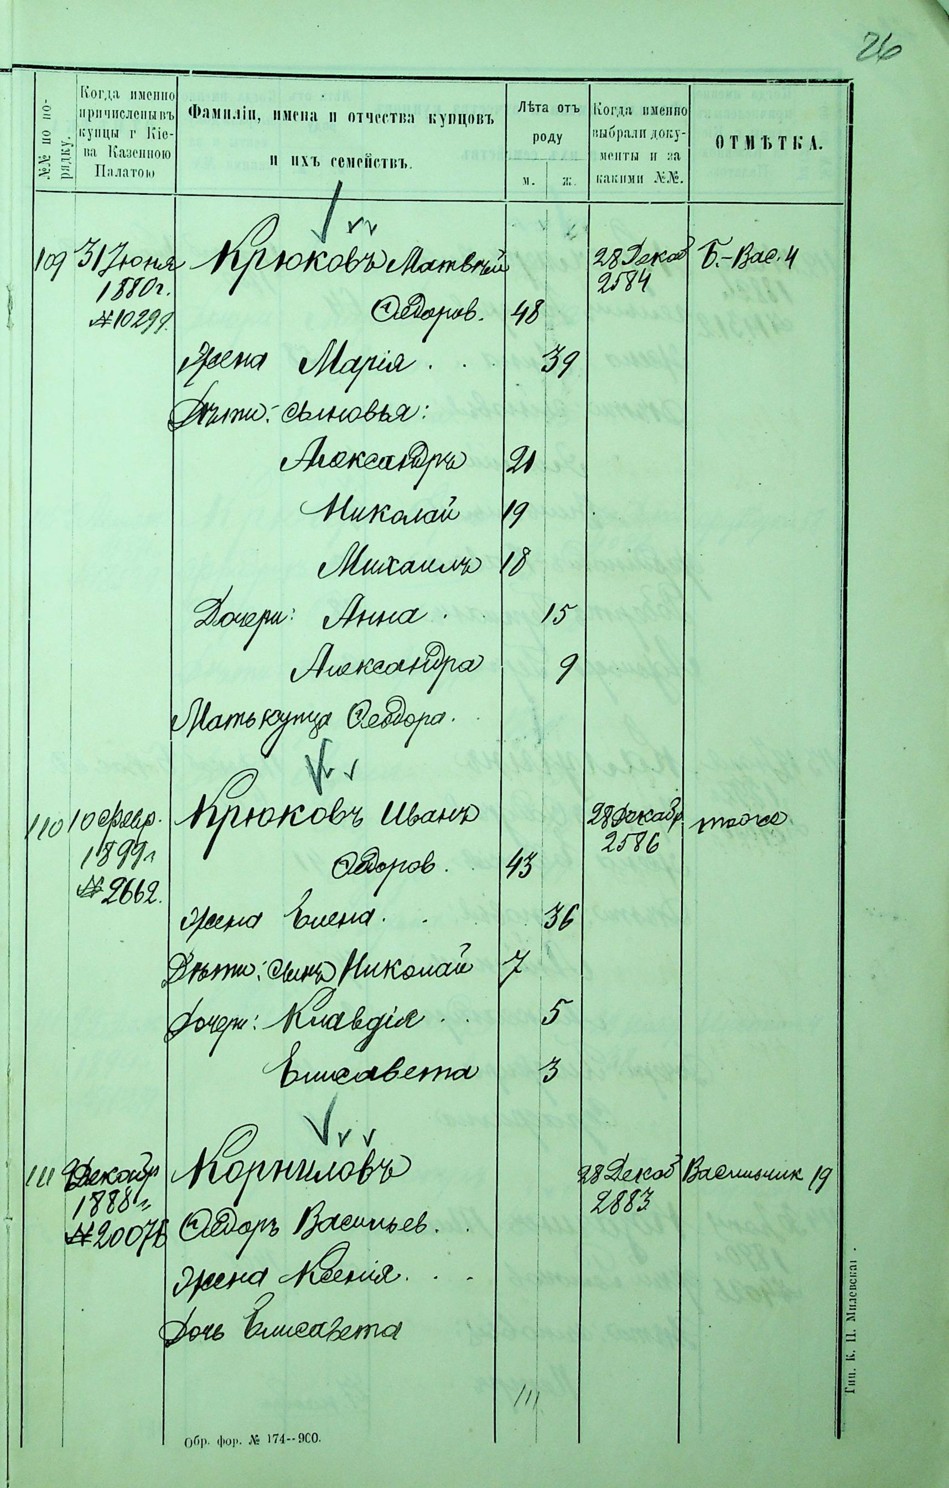 26
№№ по порядку.
Когда именно причислены въ купцы г Кіева Казенною Палатою
Фамиліи, имена и отчества купцовъ и ихъ семействъ.
Лѣта отъ роду
м. ж.
Когда именно выбрали документы и за какими №№.
ОТМѢТКА.
109 31 Іюня Крюковъ Матвѣй 28 Декаб Б.-Вас. 4
1880г. 2584
№10299. Ѳедоров. 48
Жена Марія . . 39
Дѣти: сыновья:
Александръ 21
Николай 19
Михаилъ 18
Дочери: Анна . 15
Александра 9
Мать купца Ѳеодора. .
110 10 февр. Крюковъ Иванъ 28 Декабр тоже
1899г 2586
№2662. Ѳедоров. . 43
Жена Елена . . 36
Дѣти: сынъ Николай 7
Дочери: Клавдія . . 5
Елисавета 3
111 9 Декабр Корниловъ 28 Декаб Васильчик 19
1888г. 2883
№20076 Ѳедоръ Васильев. .
Жена Ксенія. . .
Дочь Елисавета
Обр. фор. № 174--900.
Тип. К. П. Милевскаг .